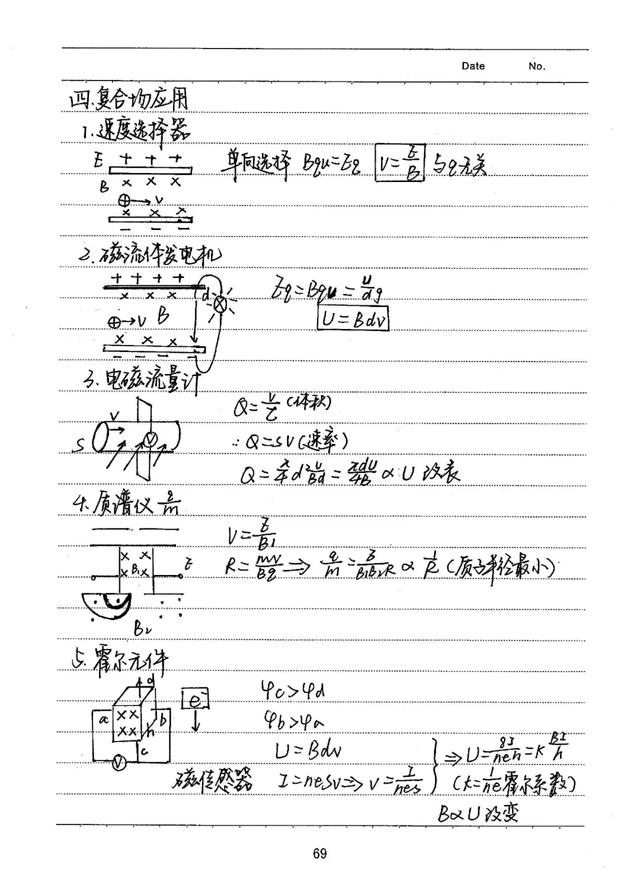 Date No.
四.复合场应用
1.速度选择器
E + + +
B × × ×
单向选择 Bqv=Eq V=E/B 与q无关
⊕→V
× × ×
− − −
2.磁流体发电机
+ + + + +
× × × × d
Eq=Bqv=U/d q
⊕→V B
U=Bdv
× × × ×
− − − − −
3.电磁流量计
Q=V/t (体积)
V
S V
∴Q=SV(速率)
Q=π/4 d² U/Bd = πdU/4B ∝ U 没表
4.质谱仪 q/m
V=E/B1
× ×
× B1 × E
R=mv/Bq ⇒ q/m=E/B1B2R ∝ 1/R (质子半径最小)
B2
5.霍尔元件
d
a ×× b e⁻
×× h
c
V
φc>φd
φb>φa
U=Bdv
磁传感器 I=nesv⇒v=I/nes
⇒U=BI/neh=K BI/h
(K=1/ne霍尔系数)
B∝U 没变
69